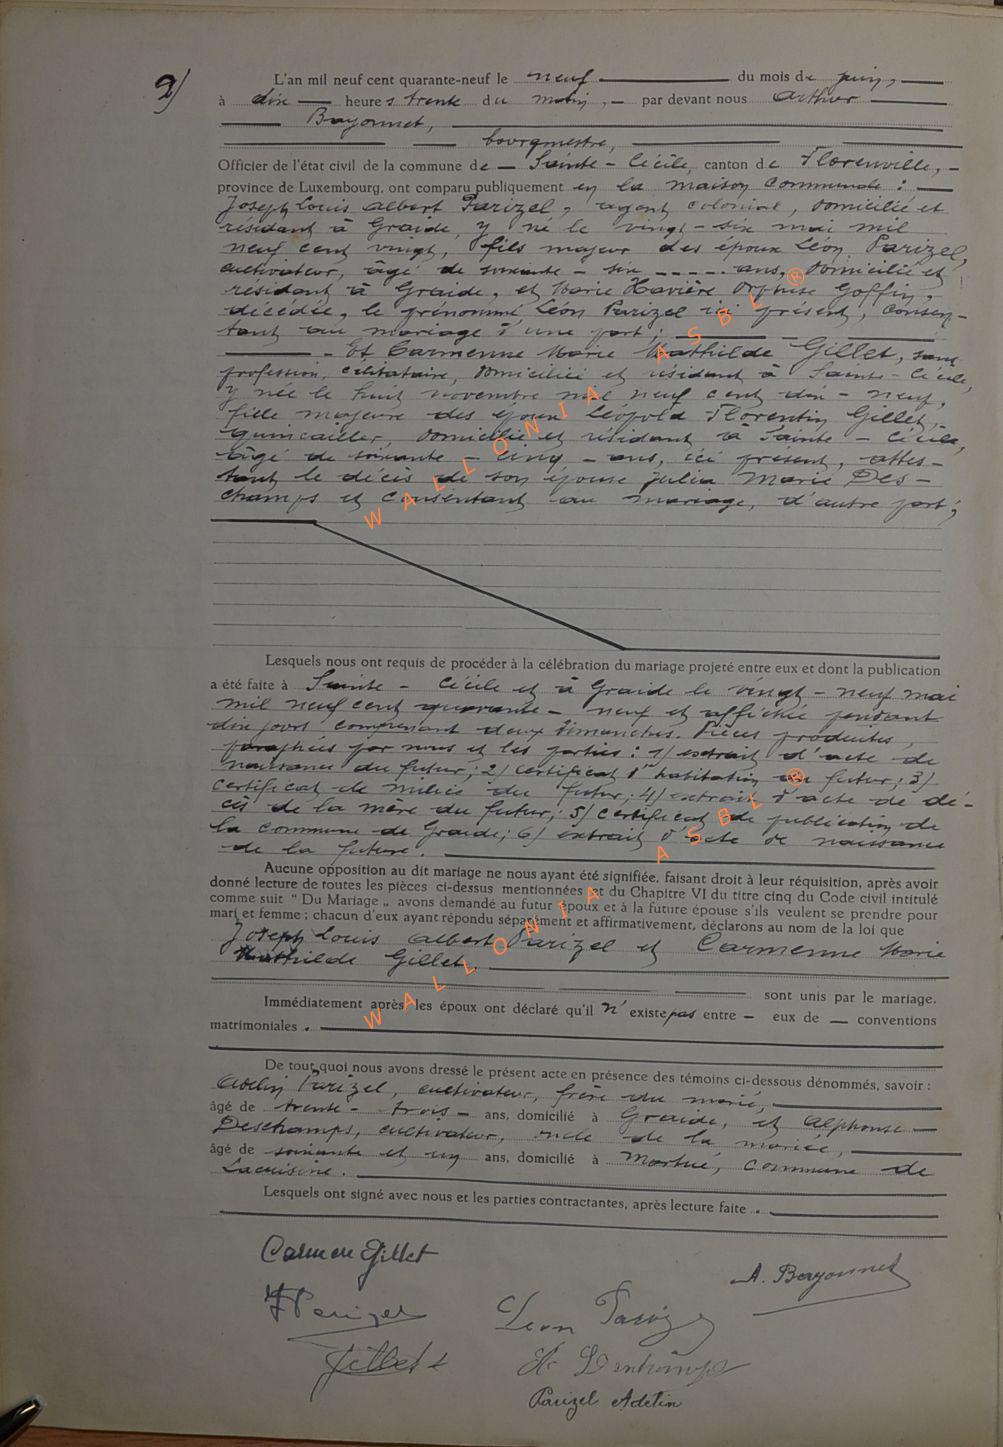 2)
L'an mil neuf cent quarante-neuf le neuf du mois de juin,
à dix heures trente du matin, par devant nous Arthur
Bayonnet,
bourgmestre,
Officier de l'état civil de la commune de Sainte-Cécile, canton de Florenville,
province de Luxembourg, ont comparu publiquement en la maison communale :
Joseph Louis Albert Parizel, agent colonial, domicilié et
résidant à Graide, y né le vingt-six mai mil
neuf cent vingt, fils majeur des époux Léon Parizel,
cultivateur, âgé de soixante-six ans, domicilié et
résidant à Graide, et Marie Xavière Orphise Goffin,
décédée, le prénommé Léon Parizel ici présent, consen-
tant au mariage d'une part ;
Et Carmenne Marie Mathilde Gillet, sans
profession, célibataire, domiciliée et résidant à Sainte-Cécile,
y née le huit novembre mil neuf cent dix-neuf,
fille majeure des époux Léopold Florentin Gillet,
quincailler, domicilié et résidant à Sainte-Cécile,
âgé de soixante-cinq ans, ici présent, attes-
tant le décès de son épouse Julia Marie Des-
champs et consentant au mariage, d'autre part ;
Lesquels nous ont requis de procéder à la célébration du mariage projeté entre eux et dont la publication
a été faite à Sainte-Cécile et à Graide le vingt-neuf mai
mil neuf cent quarante-neuf et affichée pendant
dix jours comprenant deux dimanches. Pièces produites,
paraphées par nous et les parties : 1) extrait d'acte de
naissance du futur ; 2) certificat d'habitation du futur ; 3)
certificat de milice du futur ; 4) extrait d'acte de dé-
cès de la mère du futur ; 5) certificat de publication de
la commune de Graide ; 6) extrait d'acte de naissance
de la future.
Aucune opposition au dit mariage ne nous ayant été signifiée, faisant droit à leur réquisition, après avoir
donné lecture de toutes les pièces ci-dessus mentionnées et du Chapitre VI du titre cinq du Code civil intitulé
comme suit " Du Mariage „ avons demandé au futur époux et à la future épouse s'ils veulent se prendre pour
mari et femme ; chacun d'eux ayant répondu séparément et affirmativement, déclarons au nom de la loi que
Joseph Louis Albert Parizel et Carmenne Marie
Mathilde Gillet.
sont unis par le mariage.
Immédiatement après les époux ont déclaré qu'il n'existe pas entre eux de conventions
matrimoniales.
De tout quoi nous avons dressé le présent acte en présence des témoins ci-dessous dénommés, savoir :
Adelin Parizel, cultivateur, frère du marié,
âgé de trente-trois ans, domicilié à Graide, et Alphonse
Deschamps, cultivateur, oncle de la mariée,
âgé de soixante et un ans, domicilié à Martué, commune de
Lacuisine.
Lesquels ont signé avec nous et les parties contractantes, après lecture faite.
Carmen Gillet
A. Bayonnet
J Parizel
Léon Parizel
Gillet
A. Deschamps
Parizel Adelin
WALLONIA ASBL ®
WALLONIA ASBL ®